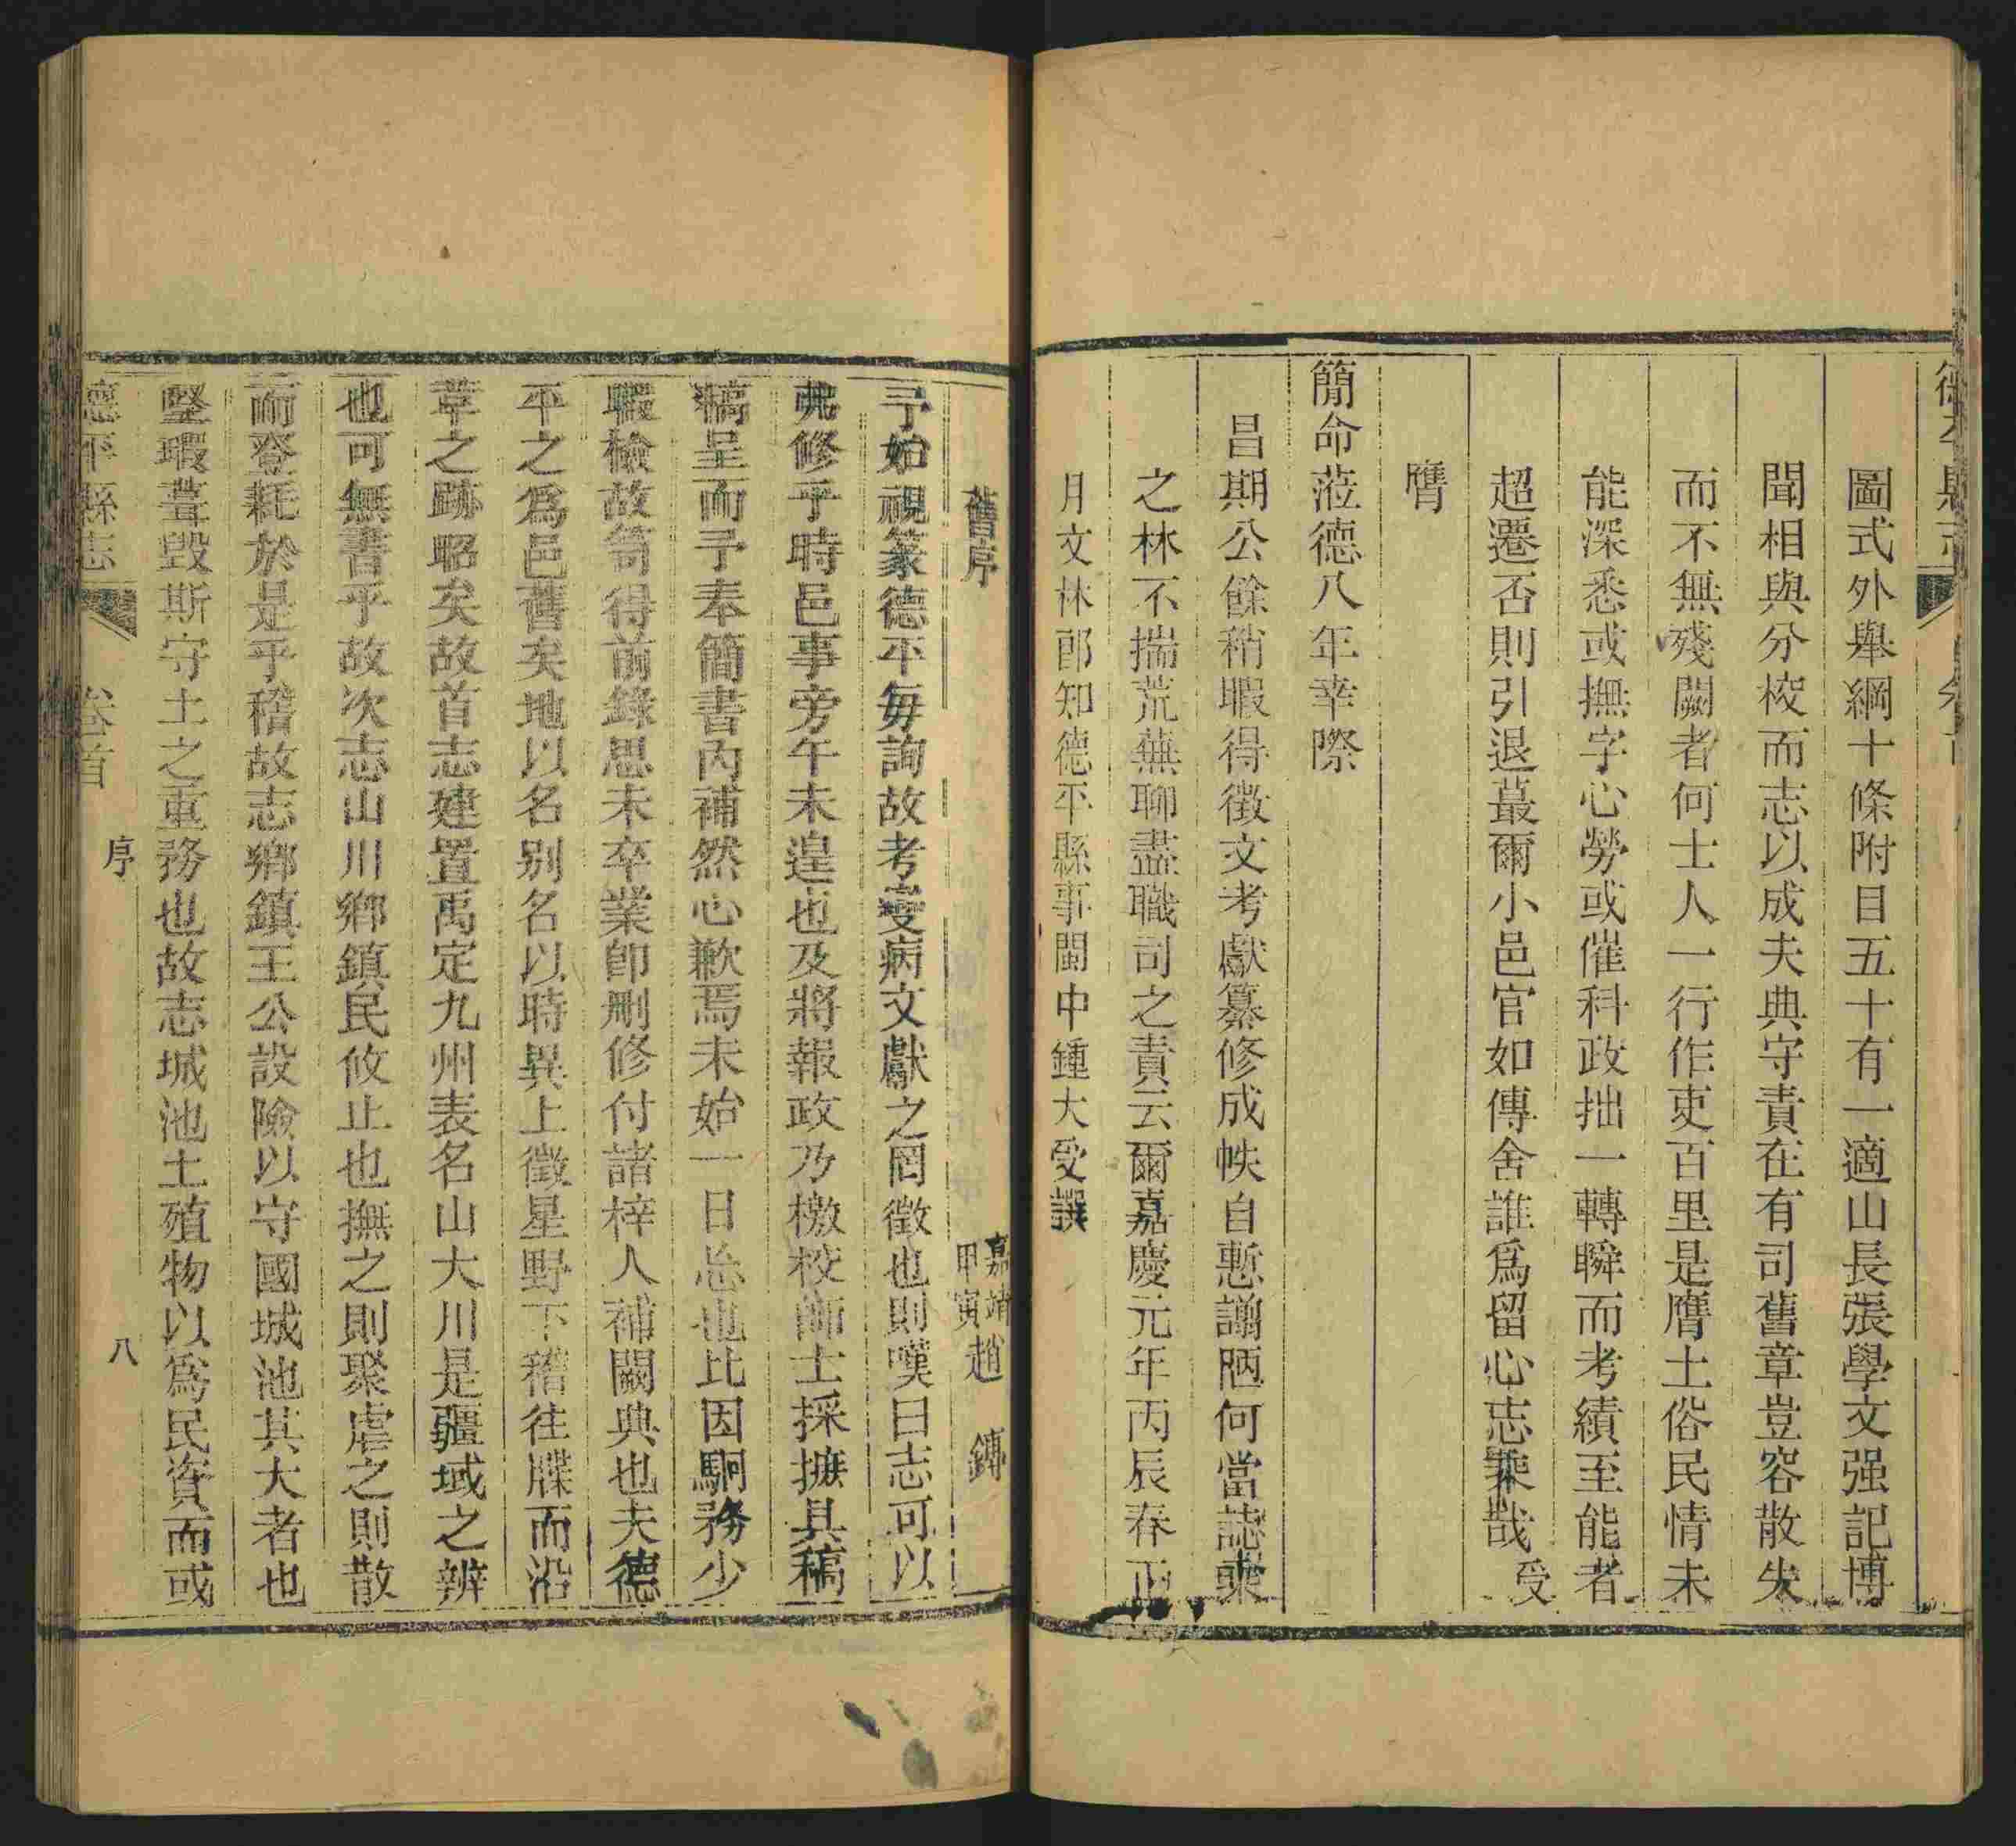 德平縣志
圖式外舉綱十條附目五十有一適山長張學文强記博
聞相與分校而志以成夫典守責在有司舊章豈容散失
而不無殘闕者何士人一行作吏百里是膺土俗民情未
能深悉或撫字心勞或催科政拙一轉瞬而考績至能者
超遷否則引退蕞爾小邑官如傳舍誰爲留心志乘哉 受
膺
簡命蒞德八年幸際
昌期公餘稍暇得徵文考獻纂修成帙自慙謭陋何當誌乘
之林不揣荒蕪聊盡職司之責云爾嘉慶元年丙辰春正
月文林郎知德平縣事閩中鍾大受譔
舊序 嘉靖甲寅 趙 鏄
予始視篆德平每詢故考變病文獻之罔徵也則嘆曰志可以
弗修乎時邑事旁午未遑也及將報政乃檄校師士採摭具稿
稿呈而予奉簡書內補然心歉焉未始一日忘也比因駉務少
暇檢故笥得前錄思未卒業卽刪修付諸梓人補闕典也夫德
平之爲邑舊矣地以名别名以時異上徵星野下稽往牒而沿
革之跡昭矣故首志建置禹定九州表名山大川是疆域之辨
也可無書乎故次志山川鄉鎮民攸止也撫之則聚虐之則散
而登耗於是乎稽故志鄉鎮王公設險以守國城池其大者也
堅瑕葺毀斯守土之重務也故志城池土殖物以爲民資而或
德平縣志 卷首 序 八